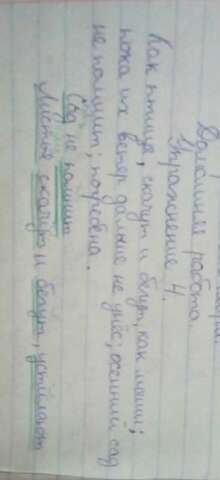 Домашняя работа.
Упражнение 4.
Как птица, скачут и бегут, как мыши;
пока их ветер дальше не унёс; осенний сад
не полишит; погребена.
Сад не пошит
Листья скачут и бегут, устилают